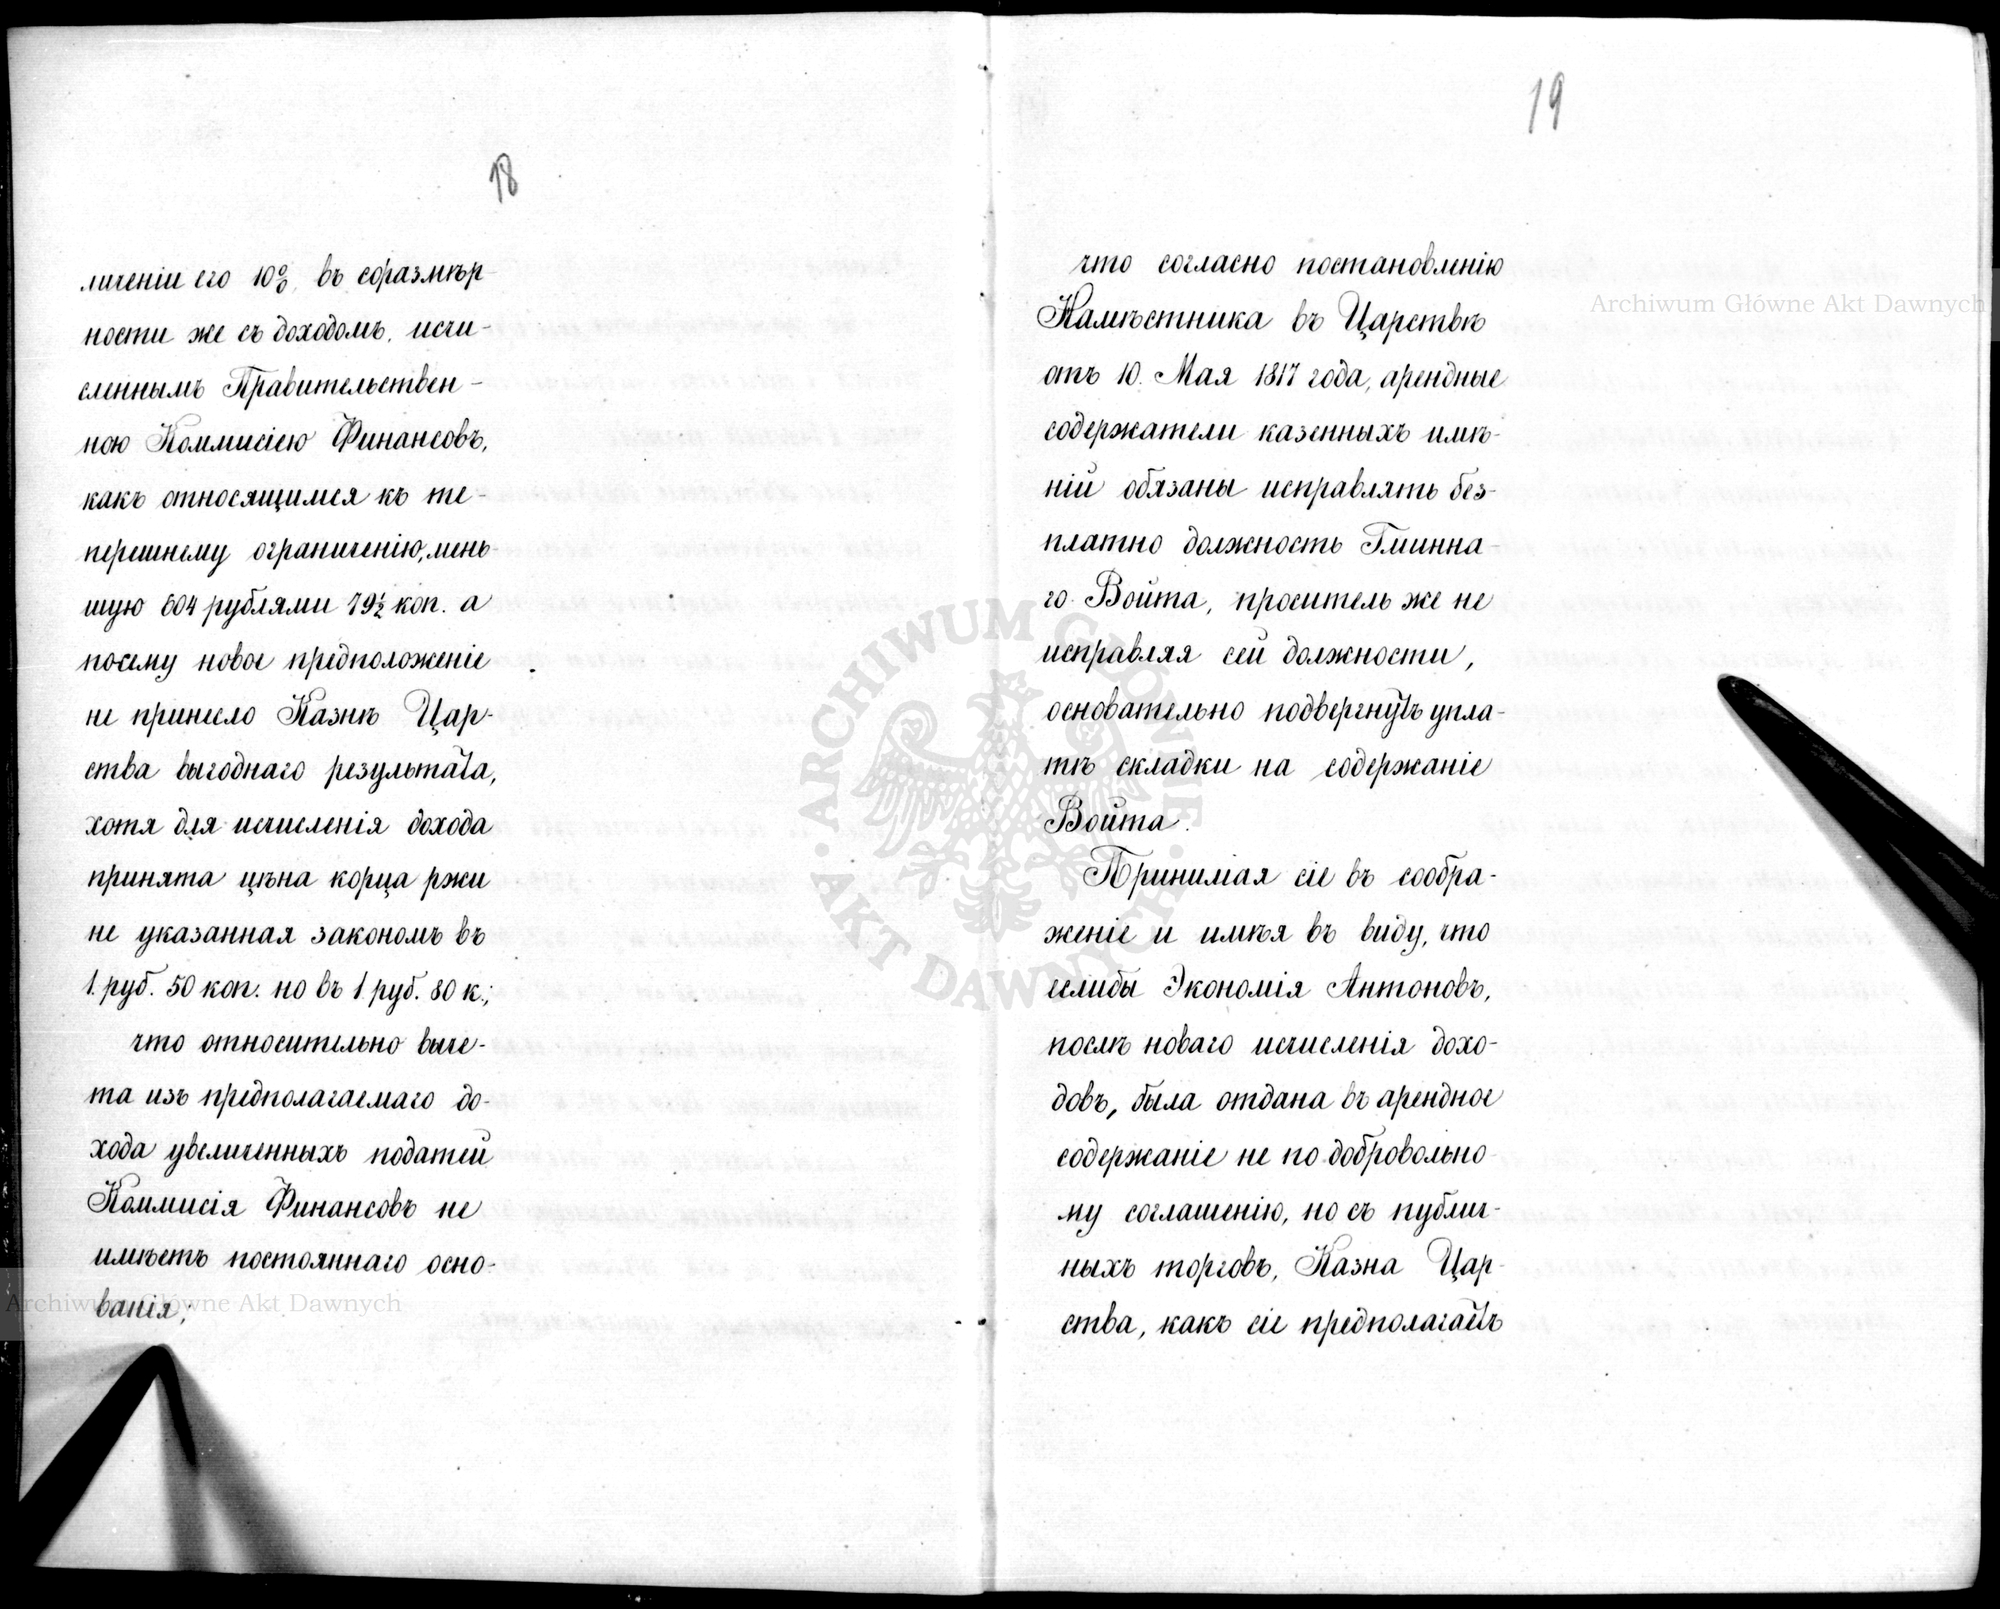 18
личеніи его 10%, въ соразмѣр-
ности же съ доходомъ, исчи-
сленнымъ Правительствен-
ною Коммисіею Финансовъ,
какъ относящимся къ те-
перешнему ограниченію, мень-
шую 604 рублями 79½ коп. а
посему новое предположеніе
не принесло Казнѣ Цар-
ства выгоднаго результата,
хотя для исчисленія дохода
принята цѣна корца ржи
не указанная закономъ въ
1 руб. 50 коп. но въ 1 руб. 80 к;
что относительно выче-
та изъ предполагаемаго до-
хода увеличенныхъ податей
Коммисія Финансовъ не
имѣетъ постояннаго осно-
ванія;
19
что согласно постановленію
Намѣстника въ Царствѣ
отъ 10. Мая 1817 года, арендные
содержатели казенныхъ имѣ-
ній обязаны исправлять без-
платно должность Гминна-
го Войта, проситель же не
исправляя сей должности,
основательно подвергнутъ упла-
тѣ складки на содержаніе
Войта.
Принимая сіе въ сообра-
женіе и имѣя въ виду, что
еслибы Экономія Антоновъ,
послѣ новаго исчисленія дохо-
довъ, была отдана въ арендное
содержаніе не по добровольно-
му соглашенію, но съ публич-
ныхъ торговъ, Казна Цар-
ства, какъ сіе предполагаетъ
Archiwum Główne Akt Dawnych
Archiwum Główne Akt Dawnych
ARCHIWUM GŁÓWNE
AKT DAWNYCH